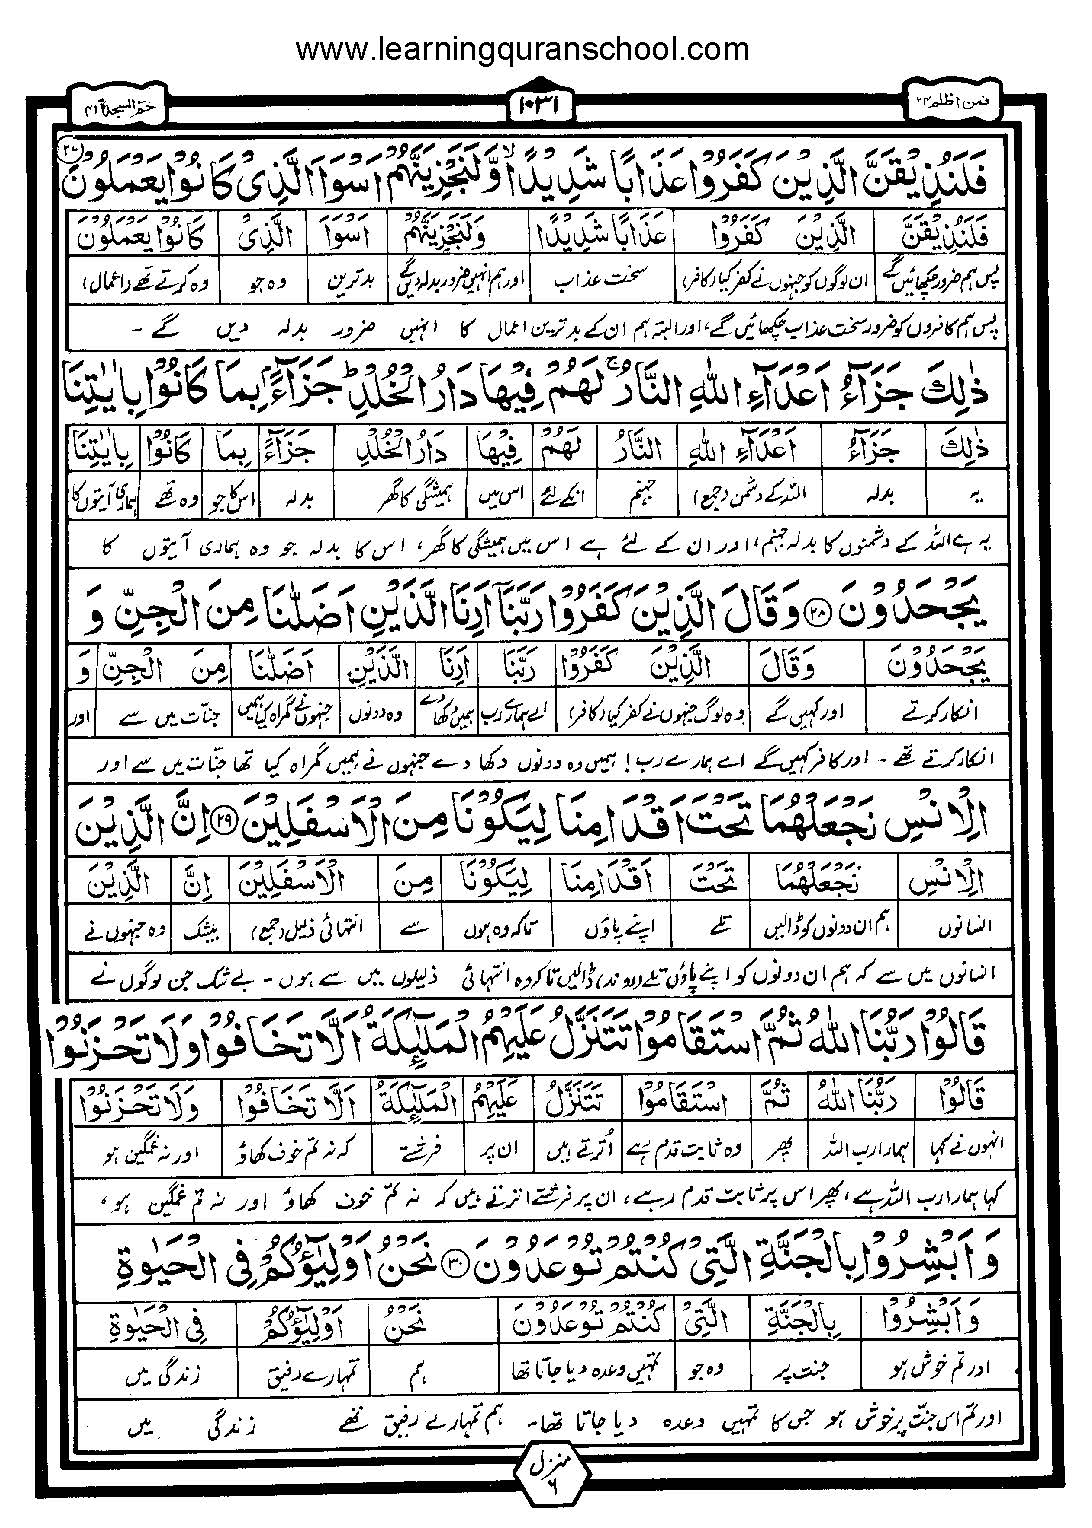 www.learningquranschool.com
حٰم السجدة ۴۱
۱۰۳۱
فمن اظلم ۲۴
فَلَنُذِيْقَنَّ الَّذِيْنَ كَفَرُوْا عَذَابًا شَدِيْدًا ۙ وَّلَنَجْزِيَنَّهُمْ اَسْوَاَ الَّذِىْ كَانُوْا يَعْمَلُوْنَ ۲۷
فَلَنُذِيْقَنَّ الَّذِيْنَ كَفَرُوْا عَذَابًا شَدِيْدًا وَلَنَجْزِيَنَّهُمْ اَسْوَاَ الَّذِىْ كَانُوْا يَعْمَلُوْنَ
پس ہم ضرور چکھائیں گے ان لوگوں کو جنہوں نے کفر کیا (کافر) سخت عذاب اور ہم انہیں ضرور بدلہ دیں گے بدترین وہ جو وہ کرتے تھے (اعمال)
پس ہم کافروں کو ضرور سخت عذاب چکھائیں گے، اور البتہ ہم ان کے بدترین اعمال کا انہیں ضرور بدلہ دیں گے -
ذٰلِكَ جَزَآءُ اَعْدَآءِ اللّٰهِ النَّارُ ۚ لَهُمْ فِيْهَا دَارُ الْخُلْدِ ؕ جَزَآءًۢ بِمَا كَانُوْا بِاٰيٰتِنَا
ذٰلِكَ جَزَآءُ اَعْدَآءِ اللّٰهِ النَّارُ لَهُمْ فِيْهَا دَارُ الْخُلْدِ جَزَآءًۢ بِمَا كَانُوْا بِاٰيٰتِنَا
یہ بدلہ اللہ کے دشمن (جمع) جہنم انکے لئے اس میں ہمیشگی کا گھر بدلہ اس کا جو وہ تھے ہماری آیتوں کا
یہ ہے اللہ کے دشمنوں کا بدلہ جہنم، اور ان کے لئے ہے اس میں ہمیشگی کا گھر، اس کا بدلہ جو وہ ہماری آیتوں کا
يَجْحَدُوْنَ ۲۸ وَقَالَ الَّذِيْنَ كَفَرُوْا رَبَّنَاۤ اَرِنَا الَّذَيْنِ اَضَلّٰنَا مِنَ الْجِنِّ وَ
يَجْحَدُوْنَ وَقَالَ الَّذِيْنَ كَفَرُوْا رَبَّنَا اَرِنَا الَّذَيْنِ اَضَلّٰنَا مِنَ الْجِنِّ وَ
انکار کرتے اور کہیں گے وہ لوگ جنہوں نے کفر کیا (کافر) اے ہمارے رب ہمیں دکھا دے وہ دونوں جنہوں نے گمراہ کیا ہمیں جنّات میں سے اور
انکار کرتے تھے - اور کافر کہیں گے اے ہمارے رب! ہمیں وہ دونوں دکھا دے جنہوں نے ہمیں گمراہ کیا تھا جنّات میں سے اور
الْاِنْسِ نَجْعَلْهُمَا تَحْتَ اَقْدَامِنَا لِيَكُوْنَا مِنَ الْاَسْفَلِيْنَ ۲۹ اِنَّ الَّذِيْنَ
الْاِنْسِ نَجْعَلْهُمَا تَحْتَ اَقْدَامِنَا لِيَكُوْنَا مِنَ الْاَسْفَلِيْنَ اِنَّ الَّذِيْنَ
انسانوں ہم ان دونوں کو ڈالیں تلے اپنے پاؤں تاکہ وہ ہوں سے انتہائی ذلیل (جمع) بیشک وہ جنہوں نے
انسانوں میں سے کہ ہم ان دونوں کو اپنے پاؤں تلے (روند) ڈالیں تاکہ وہ انتہائی ذلیلوں میں سے ہوں - بے شک جن لوگوں نے
قَالُوْا رَبُّنَا اللّٰهُ ثُمَّ اسْتَقَامُوْا تَتَنَزَّلُ عَلَيْهِمُ الْمَلٰٓئِكَةُ اَلَّا تَخَافُوْا وَلَا تَحْزَنُوْا
قَالُوْا رَبُّنَا اللّٰهُ ثُمَّ اسْتَقَامُوْا تَتَنَزَّلُ عَلَيْهِمُ الْمَلٰٓئِكَةُ اَلَّا تَخَافُوْا وَلَا تَحْزَنُوْا
انہوں نے کہا ہمارا رب اللہ پھر وہ ثابت قدم رہے اُترتے ہیں ان پر فرشتے کہ نہ تم خوف کھاؤ اور نہ غمگین ہو
کہا ہمارا رب اللہ ہے، پھر اس پر ثابت قدم رہے، ان پر فرشتے اترتے ہیں کہ نہ تم خوف کھاؤ اور نہ تم غمگین ہو،
وَاَبْشِرُوْا بِالْجَنَّةِ الَّتِىْ كُنْتُمْ تُوْعَدُوْنَ ۳۰ نَحْنُ اَوْلِيٰٓؤُكُمْ فِى الْحَيٰوةِ
وَاَبْشِرُوْا بِالْجَنَّةِ الَّتِىْ كُنْتُمْ تُوْعَدُوْنَ نَحْنُ اَوْلِيٰٓؤُكُمْ فِى الْحَيٰوةِ
اور تم خوش ہو جنت پر وہ جو تمہیں وعدہ دیا جاتا تھا ہم تمہارے رفیق زندگی میں
اور تم اس جنت پر خوش ہو جس کا تمہیں وعدہ دیا جاتا تھا۔ ہم تمہارے رفیق تھے زندگی میں
منزل ۶